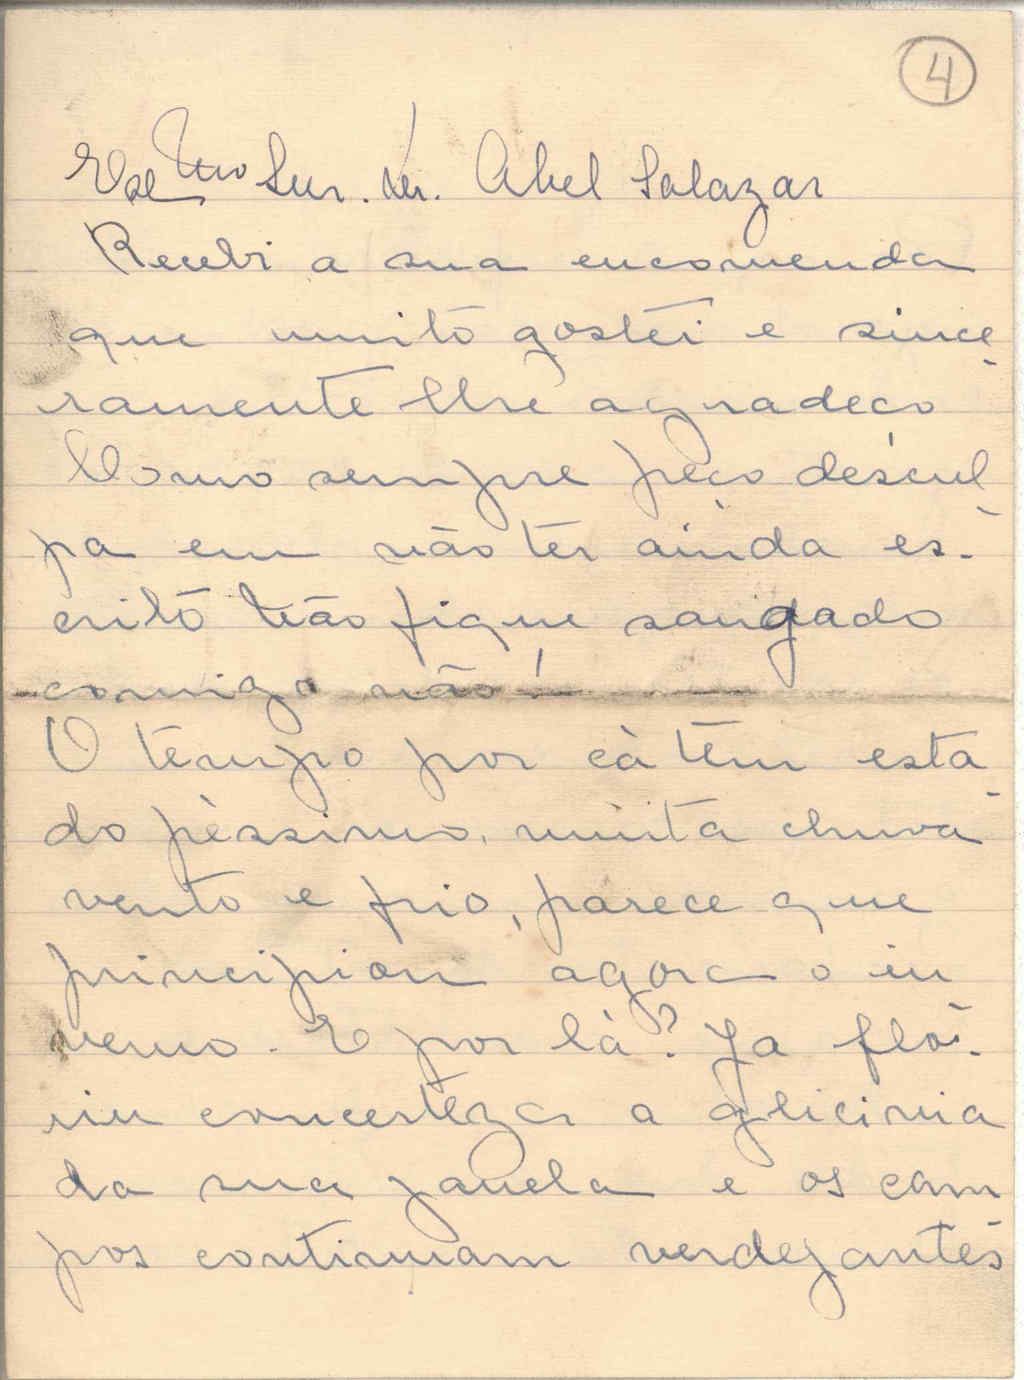 4
Exe mo Snr. Dr. Abel Salazar
Recebi a sua encomenda
que muito gostei e since
ramente lhe agradeço
Como sempre peço descul
pa em não ter ainda es-
crito Não fique sangado
comigo não!
O tempo por cà têm esta
do pèssimo, muita chuva
vento e frio, parece que
principiou agora o in
verno. E por là? Ja flo-
riu concerteza a glicinia
da sua janela e os cam
pos continuam verdejantes